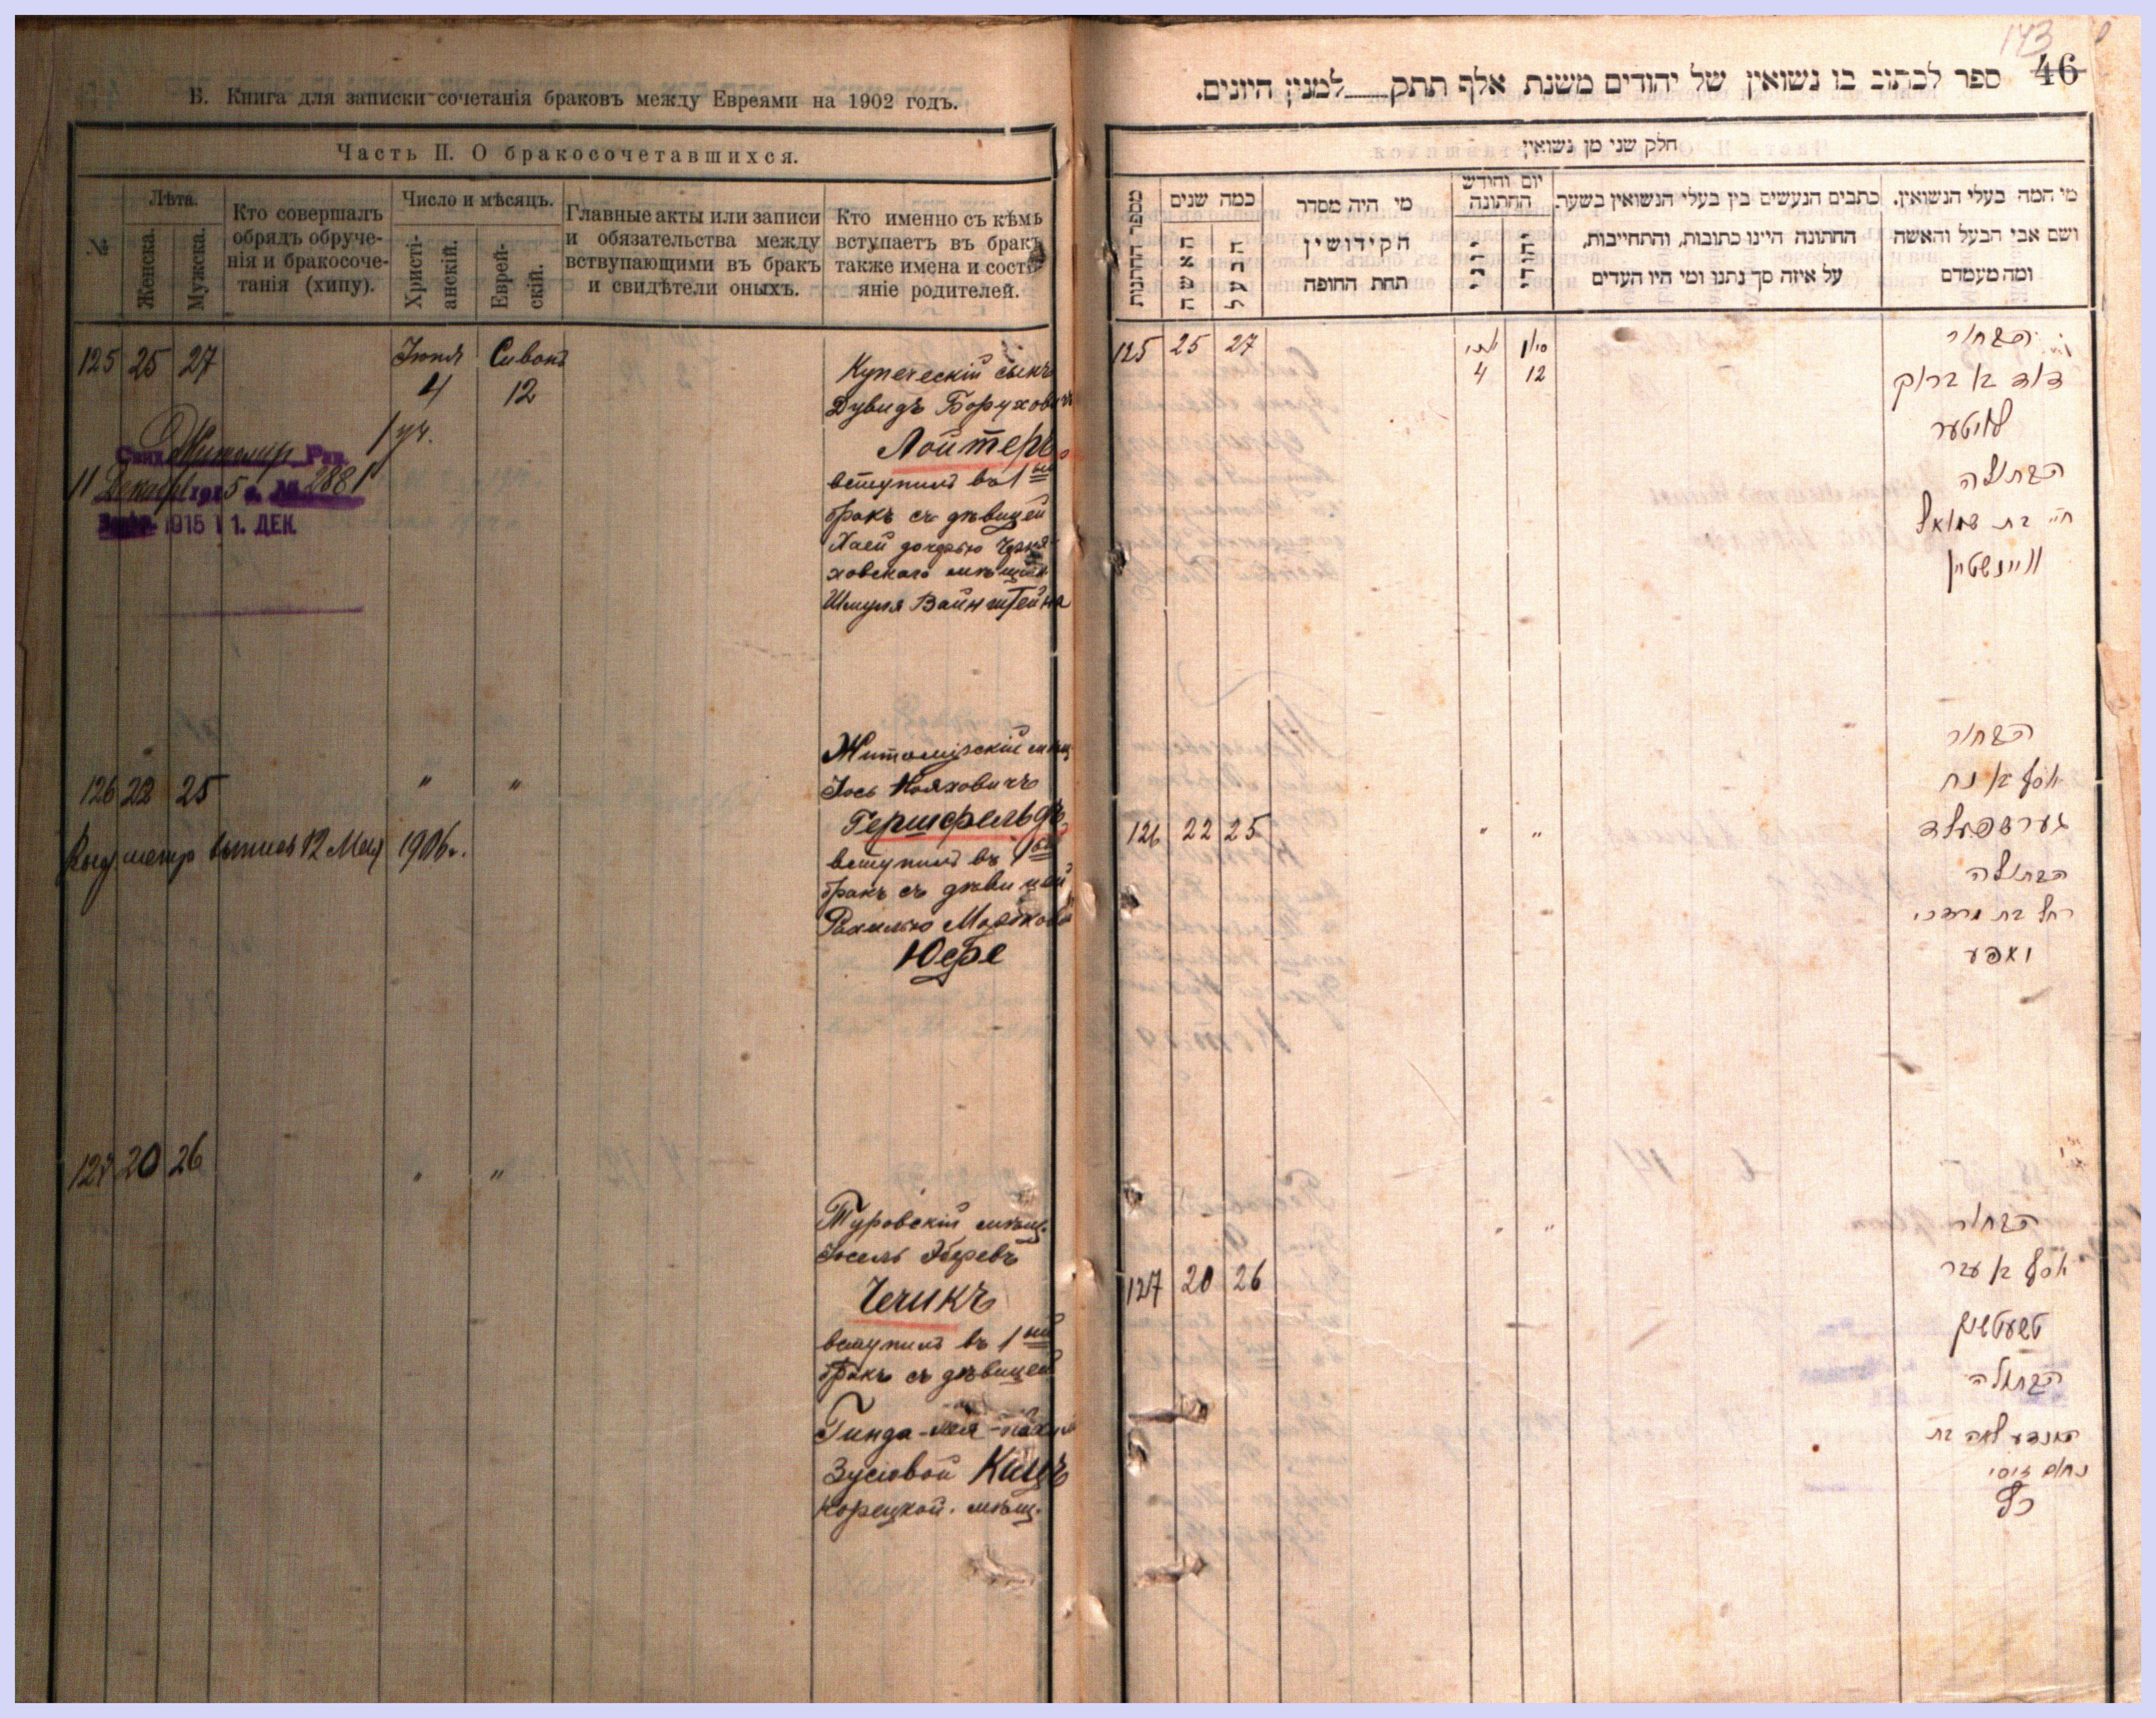 Б. Книга для записки сочетанія браковъ между Евреями на 1902 годъ.
Часть II. О бракосочетавшихся.
№
Лѣта.
Женска.
Мужска.
Кто совершалъ
обрядъ обруче-
нія и бракосоче-
танія (хипу).
Число и мѣсяцъ.
Христі-
анскій.
Еврей-
скій.
Главные акты или записи
и обязательства между
вствупающими въ бракъ
и свидѣтели оныхъ.
Кто именно съ кѣмъ
вступаетъ въ бракъ
также имена и состо-
яніе родителей.
125 25 27 Іюня Сивонъ
4 12
Купеческій сынъ
Дувидъ Боруховичъ
Лойтеръ
вступилъ въ 1ый
бракъ съ дѣвицей
Хаей дочерью Черня-
ховскаго мѣщан
Шмуля Вайнштейна
Житомир Рав.
11 Декабря 1915 г. № 2881
1915 11. ДЕК.
126 22 25 " "
Житомірскій мѣщ.
Іось Нояховичъ
Гершфельдъ
вступилъ въ 1ый
бракъ съ дѣвицей
Рахилью Мордковой
Юфе
выпись 12 Мая 1906 г.
127 20 26 " "
Туровскій мѣщ.
Іосель Эберевъ
Чечикъ
вступилъ въ 1ый
бракъ съ дѣвицей
Гинда-Лея
Зусіовой Кацъ
Корецкой мѣщ.
143
46
ספר לכתוב בו נשואין של יהודים משנת אלף תתק___למנין היונים.
חלק שני מן נשואין
מספר החתונות
כמה שנים
האשה
הבעל
מי היה מסדר
הקידושין
תחת החופה
יום וחודש
החתונה
יוני
יהודי
כתבים הנעשים בין בעלי הנשואין בשעת
החתונה היינו כתובות, והתחייבות,
על איזה סך נתנו ומי היו העדים
מי המה בעלי הנשואין.
ושם אבי הבעל והאשה
ומה מעמדם
125 25 27 יוני סיון
4 12
הבחור
דוד בן ברוך
לויטער
הבתולה
חי' בת שמואל
וויינשטיין
126 22 25 " "
הבחור
יוסף בן נח
גערשפעלד
הבתולה
רחל בת מרדכי
יאפע
127 20 26 " "
הבחור
יוסף בן עבר
טשעטשיק
הבתולה
הינדע לאה בת
נחום זוסי
כץ